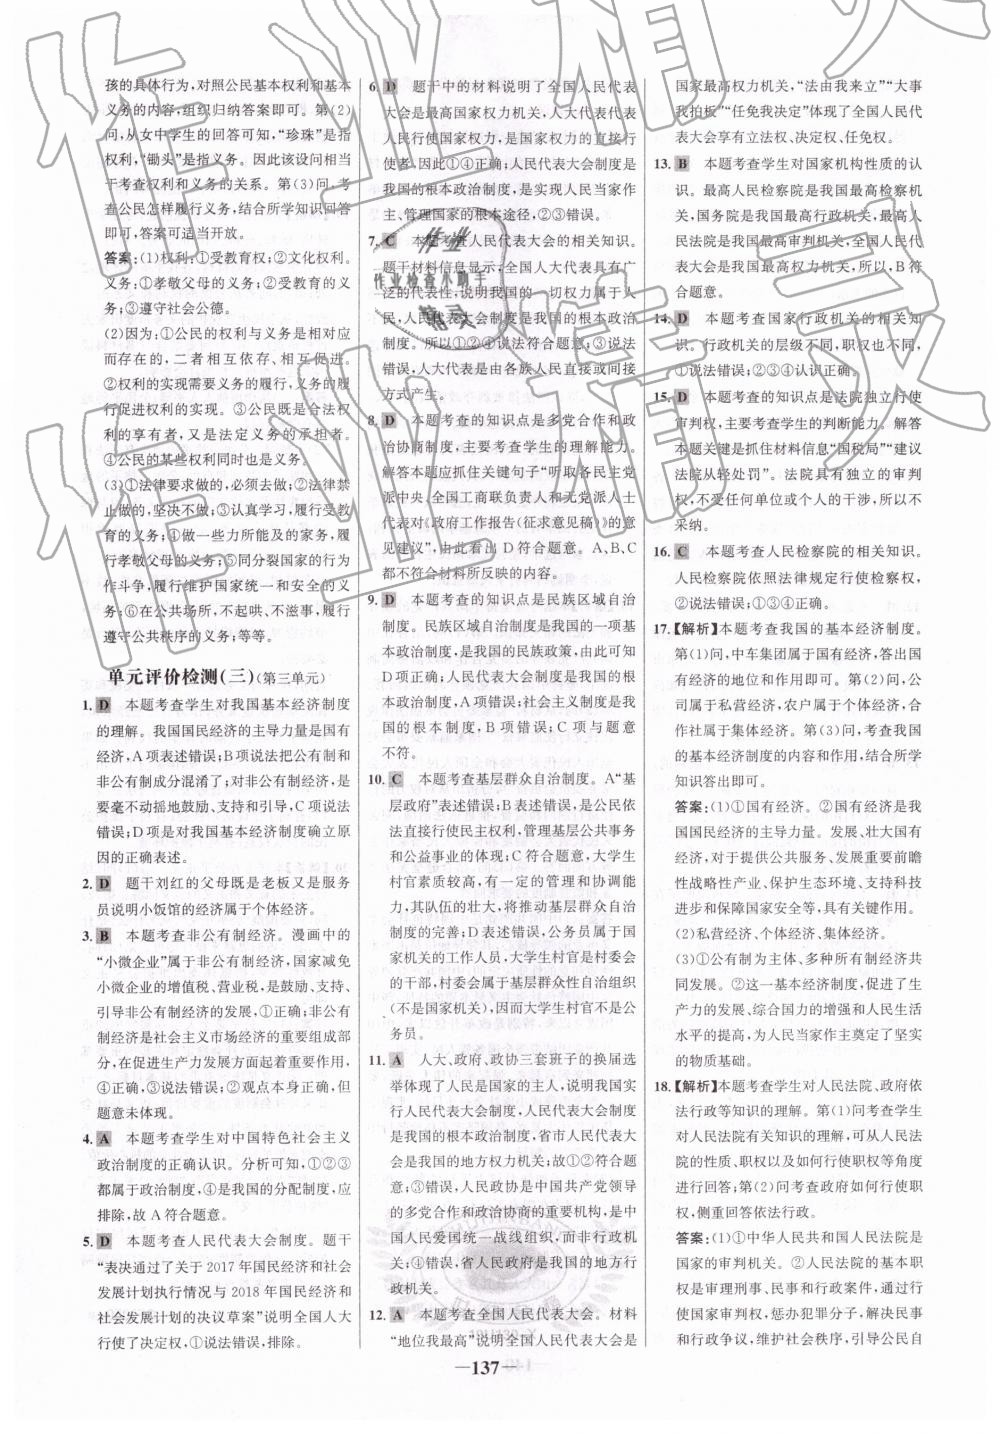 孩的具体行为,对照公民基本权利和基本
义务的内容,组织归纳答案即可。第(2)
问,从女中学生的回答可知,“珍珠”是指
权利,“锄头”是指义务。因此该问相当
于考查权利和义务的关系。第(3)问,考
查公民怎样履行义务,结合所学知识回答
即可,答案可适当开放。
答案:(1)权利:①受教育权;②文化权利。
义务:①孝敬父母的义务;②受教育的义
务;③遵守社会公德。
(2)因为:①公民的权利与义务是相对应
而存在的,二者相互依存、相互促进。
②权利的实现需要义务的履行,义务的履
行促进权利的实现。③公民既是合法权
利的享有者,又是法定义务的承担者。
④公民的某些权利同时也是义务。
(3)①法律要求做的,必须去做;②法律禁
止做的,坚决不做;③认真学习,履行受教
育的义务;④做一些力所能及的家务,履
行孝敬父母的义务;⑤同分裂国家的行为
作斗争,履行维护国家统一和安全的义
务;⑥在公共场所,不起哄、不滋事,履行
遵守公共秩序的义务;等等。
单元评价检测(三)(第三单元)
1. D 本题考查学生对我国基本经济制度
的理解。我国国民经济的主导力量是国有
经济,A项表述错误;B项说法把公有制和
非公有制成分混淆了;对非公有制经济,是
要毫不动摇地鼓励、支持和引导,C项说法
错误;D项是对我国基本经济制度确立原
因的正确表述。
2. D 题干刘红的父母既是老板又是服务
员说明小饭馆的经济属于个体经济。
3. B 本题考查非公有制经济。漫画中的
“小微企业”属于非公有制经济,国家减免
小微企业的增值税、营业税,是鼓励、支持、
引导非公有制经济的发展,①正确;非公有
制经济是社会主义市场经济的重要组成部
分,在促进生产力发展方面起着重要作用,
④正确,③说法错误;②观点本身正确,但
题意未体现。
4. A 本题考查学生对中国特色社会主义
政治制度的正确认识。分析可知,①②③
都属于政治制度,④是我国的分配制度,应
排除,故A符合题意。
5. D 本题考查人民代表大会制度。题干
“表决通过了关于2017年国民经济和社会
发展计划执行情况与2018年国民经济和
社会发展计划的决议草案”说明全国人大
行使了决定权,①说法错误,排除。
6. D 题干中的材料说明了全国人民代表
大会是最高国家权力机关,人大代表代表
人民行使国家权力,是国家权力的直接行
使者,因此①④正确;人民代表大会制度是
我国的根本政治制度,是实现人民当家作
主、管理国家的根本途径,②③错误。
7. C 本题考查人民代表大会的相关知识。
题干材料信息显示,全国人大代表具有广
泛的代表性,说明我国的一切权力属于人
民,人民代表大会制度是我国的根本政治
制度。所以①②④说法符合题意;③说法
错误,人大代表是由各族人民直接或间接
方式产生。
8. D 本题考查的知识点是多党合作和政
治协商制度,主要考查学生的理解能力。
解答本题应抓住关键句子“听取各民主党
派中央、全国工商联负责人和无党派人士
代表对《政府工作报告(征求意见稿)》的意
见建议”,由此看出D符合题意。A、B、C
都不符合材料所反映的内容。
9. D 本题考查的知识点是民族区域自治
制度。民族区域自治制度是我国的一项基
本政治制度,是我国的民族政策,由此可知
D项正确;人民代表大会制度是我国的根
本政治制度,A项错误;社会主义制度是我
国的根本制度,B项错误;C项与题意
不符。
10. C 本题考查基层群众自治制度。A“基
层政府”表述错误;B表述错误,是公民依
法直接行使民主权利,管理基层公共事务
和公益事业的体现;C符合题意,大学生
村官素质较高,有一定的管理和协调能
力,其队伍的壮大,将推动基层群众自治
制度的完善;D表述错误,公务员属于国
家机关的工作人员,大学生村官是村委会
的成员,村委会属于基层群众性自治组织
(不是国家机关),因而大学生村官不是公
务员。
11. A 人大、政府、政协三套班子的换届选
举体现了人民是国家的主人,说明我国实
行人民代表大会制度,人民代表大会制度
是我国的根本政治制度,省市人民代表大
会是我国的地方权力机关;故①②符合题
意;③错误,人民政协是中国共产党领导
的多党合作和政治协商的重要机构,是中
国人民爱国统一战线组织,而非行政机
关;④错误,省人民政府是我国的地方行
政机关。
12. A 本题考查全国人民代表大会。材料
“地位我最高”说明全国人民代表大会是
国家最高权力机关,“法由我来立”“大事
我拍板”“任免我决定”体现了全国人民代
表大会享有立法权、决定权、任免权。
13. B 本题考查学生对国家机构性质的认
识。最高人民检察院是我国最高检察机
关,国务院是我国最高行政机关,最高人
民法院是我国最高审判机关,全国人民代
表大会是我国最高权力机关,所以,B符
合题意。
14. D 本题考查国家行政机关的相关知
识。行政机关的层级不同,职权也不同,
①说法错误;②③④认识正确。
15. D 本题考查的知识点是法院独立行使
审判权,主要考查学生的判断能力。解答
本题关键是抓住材料信息“国税局”“建议
法院从轻处罚”。法院具有独立的审判
权,不受任何单位或个人的干涉,所以不
采纳。
16. C 本题考查人民检察院的相关知识。
人民检察院依照法律规定行使检察权,
②说法错误;①③④正确。
17.【解析】本题考查我国的基本经济制度。
第(1)问,中车集团属于国有经济,答出国
有经济的地位和作用即可。第(2)问,该
公司属于私营经济,农户属于个体经济,合
作社属于集体经济。第(3)问,考查我国
的基本经济制度的内容和作用,结合所学
知识答出即可。
答案:(1)①国有经济。②国有经济是我
国国民经济的主导力量。发展、壮大国有
经济,对于提供公共服务、发展重要前瞻
性战略性产业、保护生态环境、支持科技
进步和保障国家安全等,具有关键作用。
(2)私营经济、个体经济、集体经济。
(3)①公有制为主体、多种所有制经济共
同发展。②这一基本经济制度,促进了生
产力的发展、综合国力的增强和人民生活
水平的提高,为人民当家作主奠定了坚实
的物质基础。
18.【解析】本题考查学生对人民法院、政府依
法行政等知识的理解。第(1)问考查学生
对人民法院有关知识的理解,可从人民法
院的性质、职权以及如何行使职权等角度
进行回答;第(2)问考查政府如何行使职
权,侧重回答依法行政。
答案:(1)①中华人民共和国人民法院是
国家的审判机关。②人民法院的基本职权
是审理刑事、民事和行政案件,通过行使
国家审判权,惩办犯罪分子,解决民事
和行政争议,维护社会秩序,引导公民自
—137—
作业精灵
作业
作业检查小助手
精灵
作业精灵